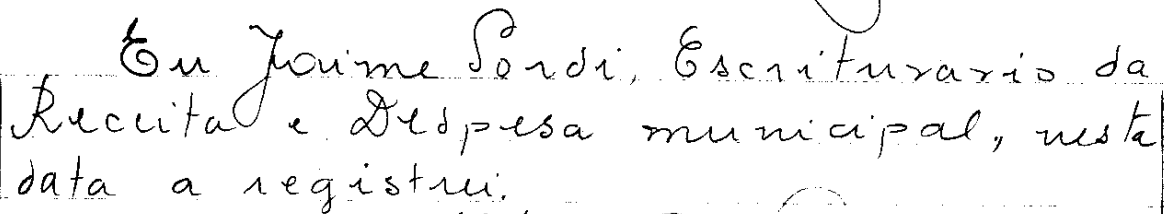 Eu Jaime Sordi, Escriturario da
Receita e Despesa municipal, nesta
data a registrei.